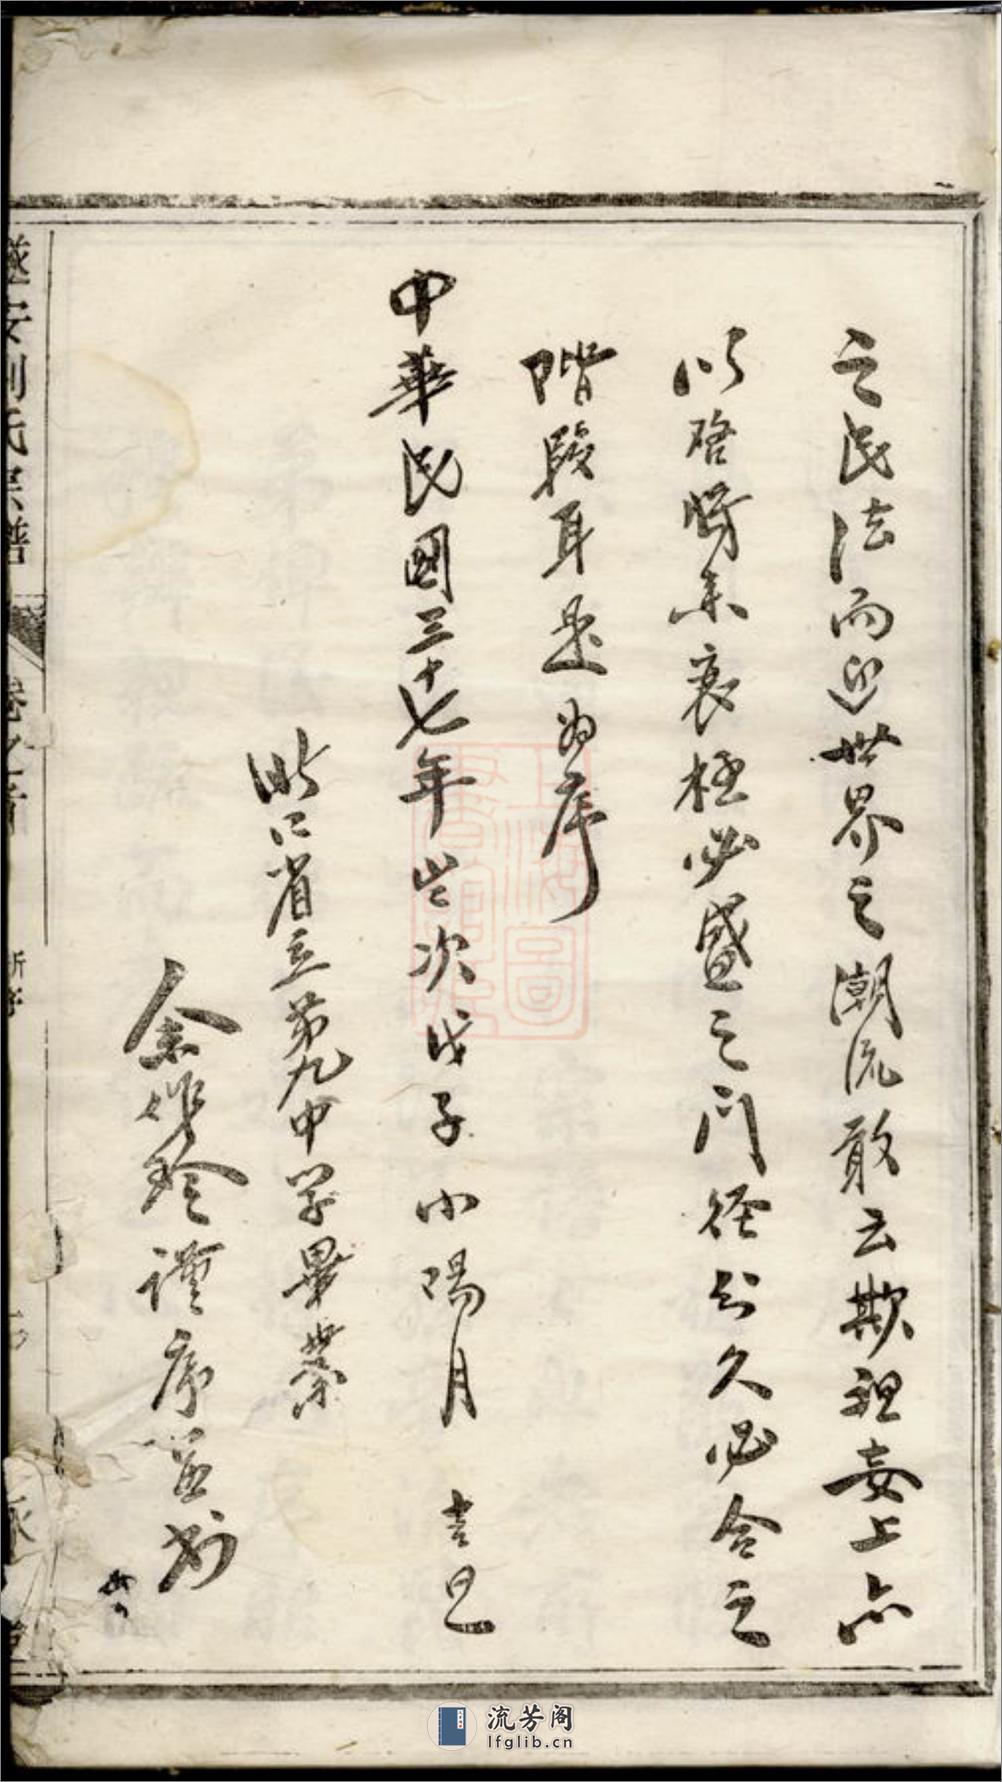 之民法而迎世界之潮流敢云欺祖妄上亦
以啓將來衰極必盛之門徑分久必合之
階段耳是为序
中華民國三十七年岁次戊子小陽月 吉旦
浙江省立第九中学畢業
余 謹序並书
遂安劉氏宗譜
卷之首
新序
流芳阁
lfglib.cn